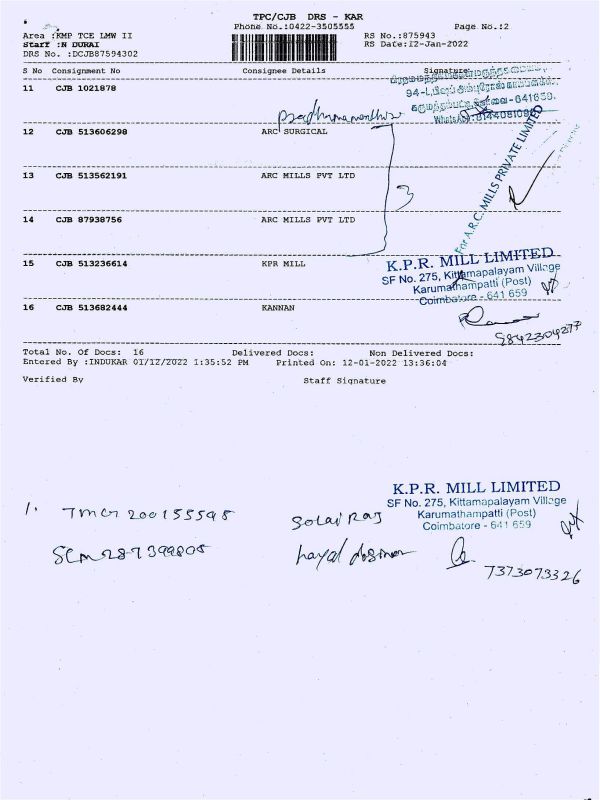 TPC/CJB DRS - KAR
Phone No.:0422-3505555 Page No.:2
Area :KMP TCE LMW II RS No.:875943
Staff :N DURAI RS Date:12-Jan-2022
DRS No. :DCJB87594302
S No Consignment No Consignee Details Signature
11 CJB 1021878
94-L,
641659.
WhatsApp:
12 CJB 513606298 ARC SURGICAL
13 CJB 513562191 ARC MILLS PVT LTD
3
For A.R.C. MILLS PRIVATE LIMITED
14 CJB 87938756 ARC MILLS PVT LTD
15 CJB 513236614 KPR MILL
K.P.R. MILL LIMITED
SF No. 275, Kittamapalayam Village
Karumathampatti (Post)
Coimbatore - 641 659
16 CJB 513682444 KANNAN
9842304277
Total No. Of Docs: 16 Delivered Docs: Non Delivered Docs:
Entered By :INDUKAR 01/12/2022 1:35:52 PM Printed On: 12-01-2022 13:36:04
Verified By Staff Signature
K.P.R. MILL LIMITED
SF No. 275, Kittamapalayam Village
Karumathampatti (Post)
Coimbatore - 641 659
1. TMG 200155598 Solai Raj
SCM287399808
7373073326